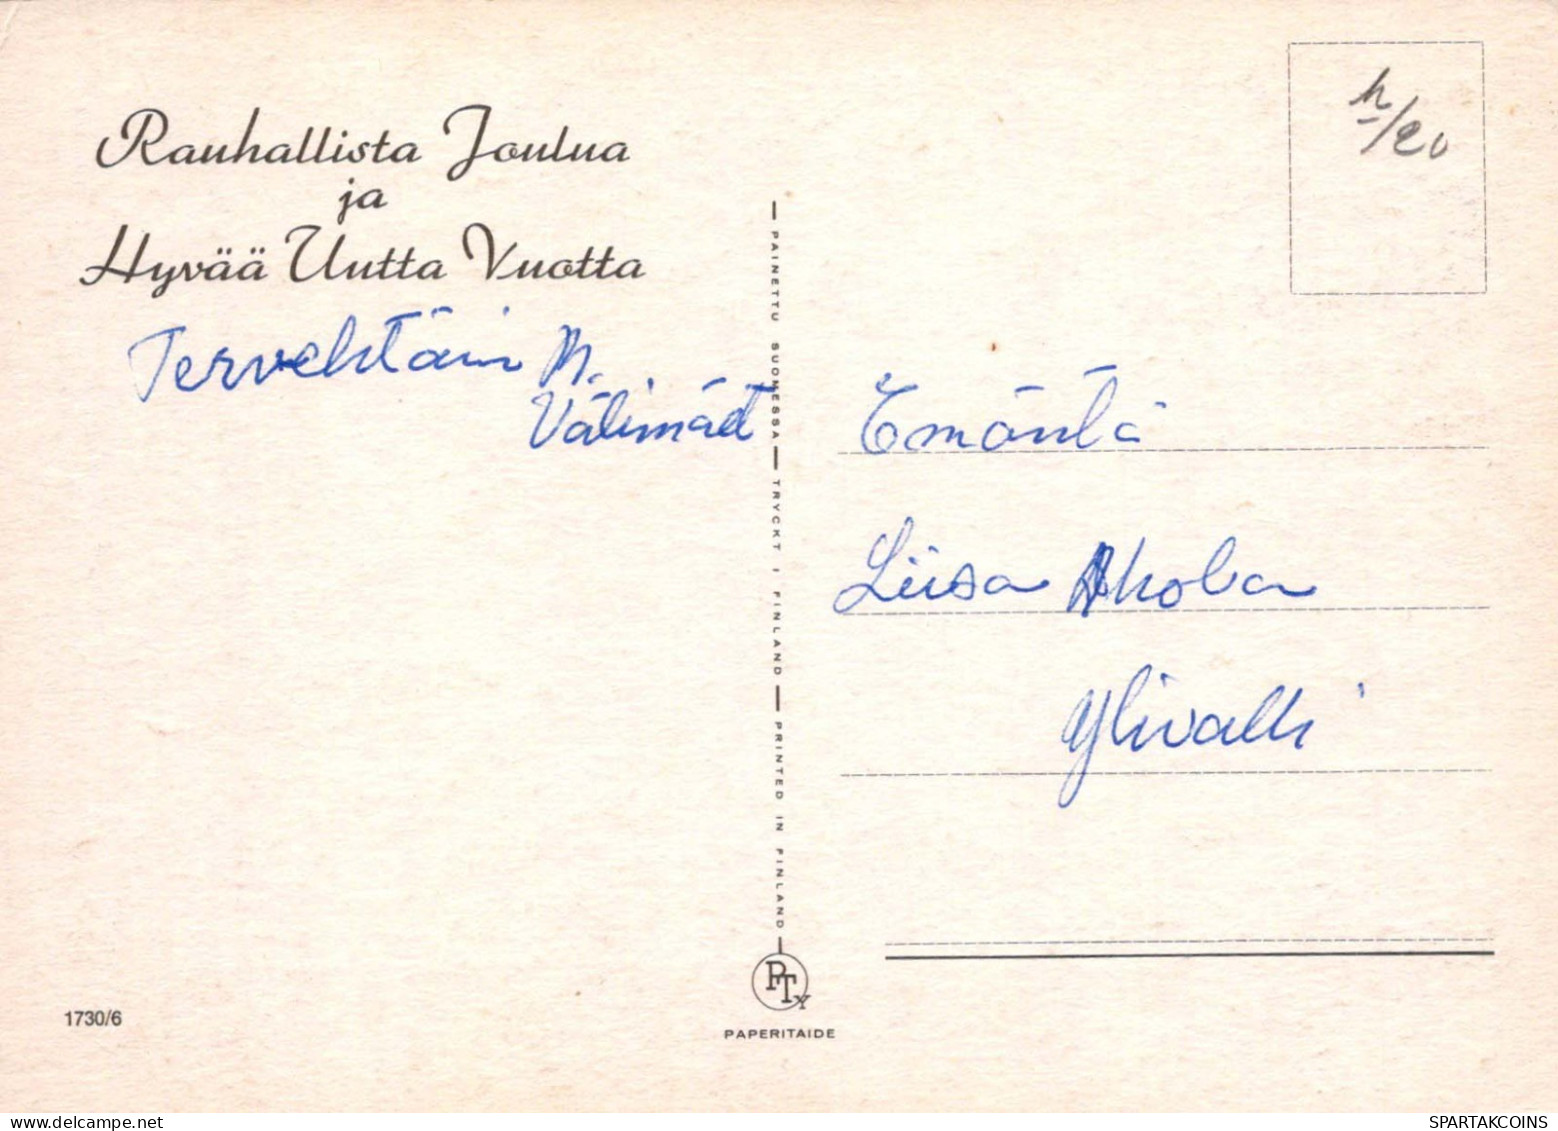 Rauhallista Joulua
ja
Hyvää Uutta Vuotta
Tervehtäin M.
Välimäet
PAINETTU SUOMESSA — TRYCKT I FINLAND — PRINTED IN FINLAND
h/20
Emäntä
Liisa Ahola
Ylivalli
PTY
PAPERITAIDE
1730/6
delcampe.net
SPARTAKCOINS